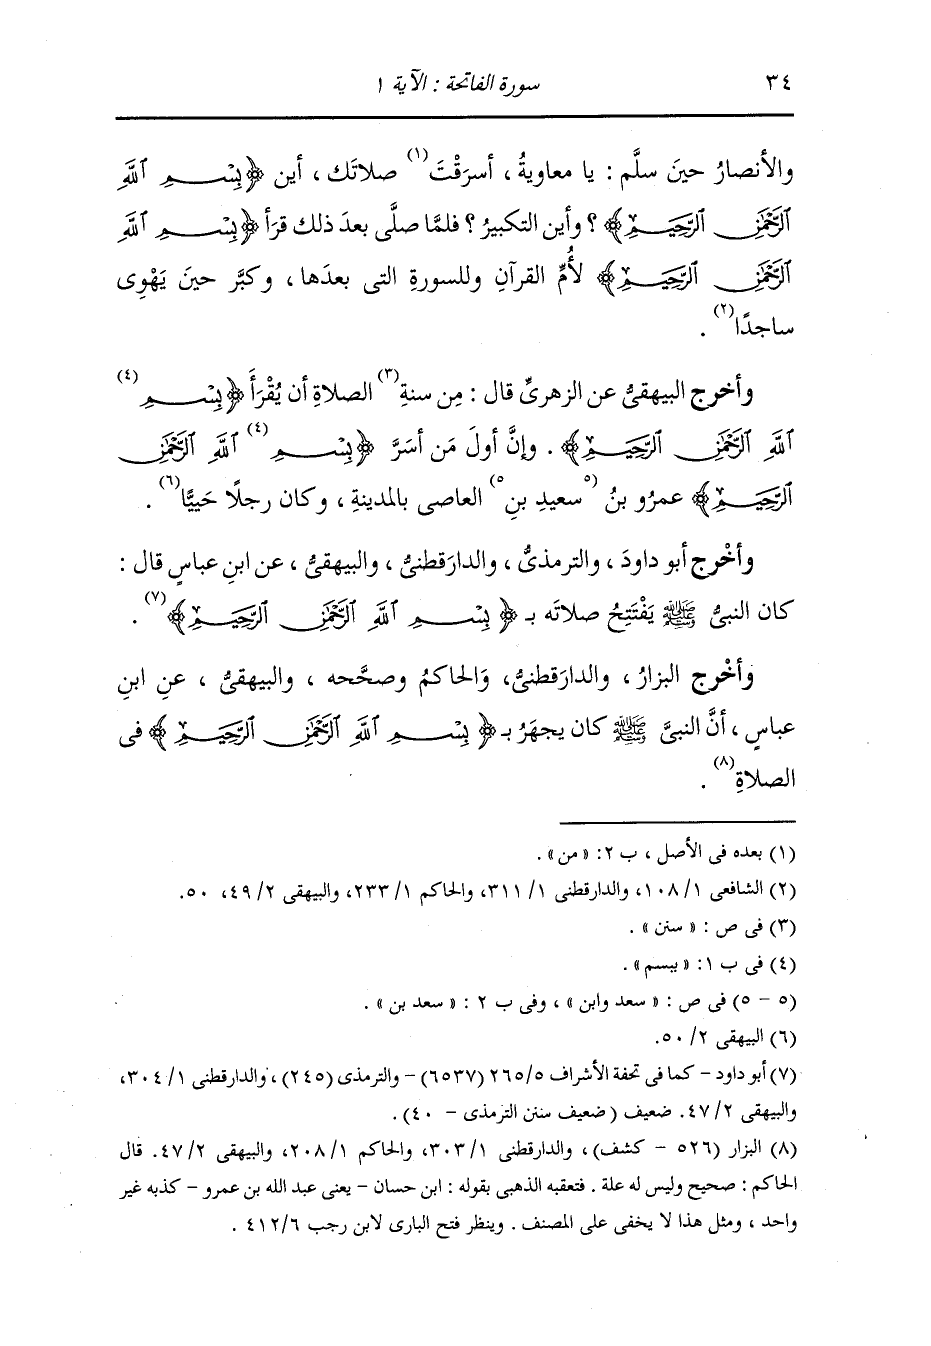 ٣٤ سورة الفاتحة : الآية ١
والأنصارُ حينَ سلَّم : يا معاويةُ ، أسرَقْتَ(١) صلاتَك ، أين ﴿بِسْمِ ٱللَّهِ
ٱلرَّحْمَٰنِ ٱلرَّحِيمِ﴾ ؟ وأين التكبيرُ ؟ فلمَّا صلَّى بعدَ ذلك قرَأ ﴿بِسْمِ ٱللَّهِ
ٱلرَّحْمَٰنِ ٱلرَّحِيمِ﴾ لأُمِّ القرآنِ وللسورةِ التى بعدَها ، وكبَّر حينَ يَهْوِى
ساجدًا(٢) .
وأخرج البيهقىُّ عن الزهرىِّ قال : مِن سنةِ(٣) الصلاةِ أن يُقْرَأَ ﴿بِسْمِ(٤)
ٱللَّهِ ٱلرَّحْمَٰنِ ٱلرَّحِيمِ﴾ . وإنَّ أولَ مَن أسَرَّ ﴿بِسْمِ(٤) ٱللَّهِ ٱلرَّحْمَٰنِ
ٱلرَّحِيمِ﴾ عمرُو بنُ (٥سعيدِ بنِ٥) العاصى بالمدينةِ ، وكان رجلًا حَيِيًّا(٦) .
وأخْرج أبو داودَ ، والترمذىُّ ، والدارَقطنىُّ ، والبيهقىُّ ، عن ابنِ عباسٍ قال :
كان النبىُّ ﷺ يَفْتَتِحُ صلاتَه بـ ﴿بِسْمِ ٱللَّهِ ٱلرَّحْمَٰنِ ٱلرَّحِيمِ﴾(٧) .
وأخْرج البزارُ ، والدارَقطنىُّ، وَالحاكمُ وصحَّحه ، والبيهقىُّ ، عنِ ابنِ
عباسٍ ، أنَّ النبىَّ ﷺ كان يجهَرُ بـ ﴿بِسْمِ ٱللَّهِ ٱلرَّحْمَٰنِ ٱلرَّحِيمِ﴾ فى
الصلاةِ(٨) .
(١) بعده فى الأصل ، ب ٢: « من» .
(٢) الشافعى ١/ ١٠٨، والدارقطنى ١/ ٣١١، والحاكم ١/ ٢٣٣، والبيهقى ٢/ ٤٩، ٥٠.
(٣) فى ص : « سنن » .
(٤) فى ب ١: « ببسم» .
(٥ - ٥) فى ص : « سعد وابن » ، وفى ب ٢ : « سعد بن » .
(٦) البيهقى ٢/ ٥٠.
(٧) أبو داود - كما فى تحفة الأشراف ٢٦٥/٥ (٦٥٣٧) - والترمذى (٢٤٥) ، والدارقطنى ١/ ٣٠٤،
والبيهقى ٢/ ٤٧. ضعيف ( ضعيف سنن الترمذى - ٤٠) .
(٨) البزار (٥٢٦ - كشف) ، والدارقطنى ١/ ٣٠٣، والحاكم ١/ ٢٠٨، والبيهقى ٢/ ٤٧. قال
الحاكم : صحيح وليس له علة . فتعقبه الذهبى بقوله : ابن حسان - يعنى عبد الله بن عمرو - كذبه غير
واحد ، ومثل هذا لا يخفى على المصنف . وينظر فتح البارى لابن رجب ٤١٢/٦ .